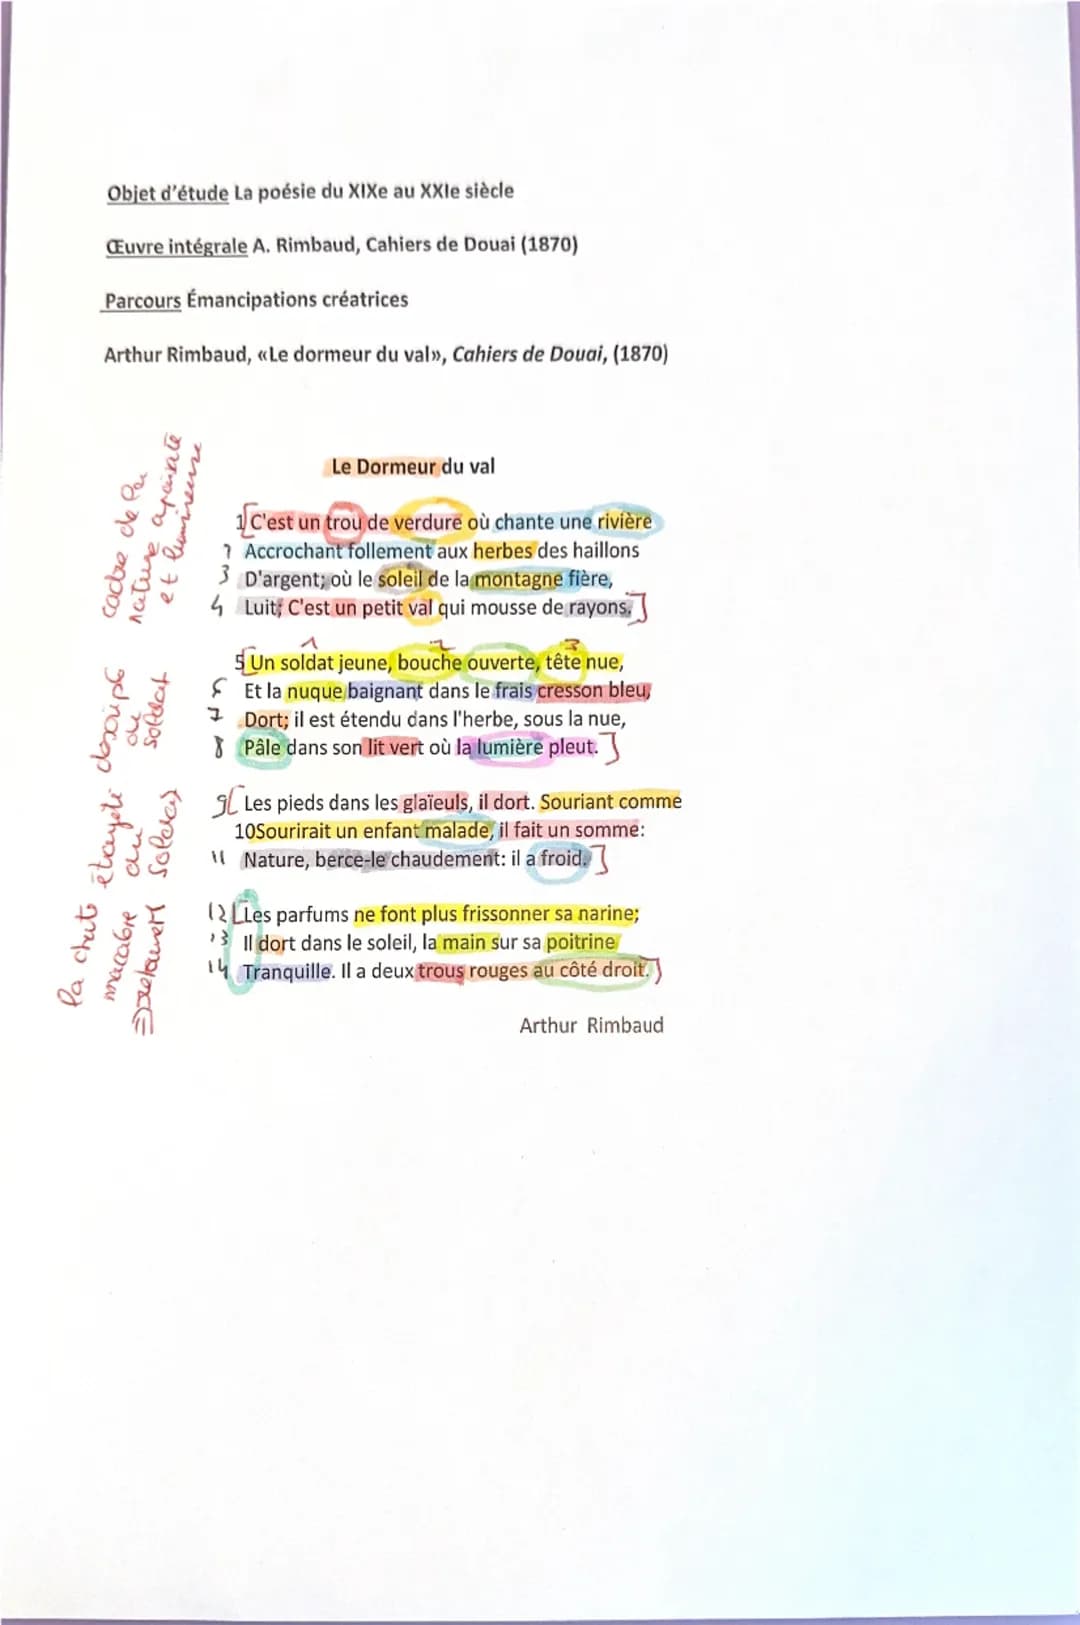 Objet d'étude La poésie du XIXe au XXIe siècle
Œuvre intégrale A. Rimbaud, Cahiers de Douai (1870)
Parcours Émancipations créatrices
Arthur Rimbaud, «Le dormeur du val», Cahiers de Douai, (1870)
Le Dormeur du val
cadre de la
nature apaisante
et lumineuse
1 [C'est un trou de verdure où chante une rivière
2 Accrochant follement aux herbes des haillons
3 D'argent; où le soleil de la montagne fière,
4 Luit; C'est un petit val qui mousse de rayons.]
descript°
du
soldat
1 2 3
5 [Un soldat jeune, bouche ouverte, tête nue,
6 Et la nuque baignant dans le frais cresson bleu,
7 Dort; il est étendu dans l'herbe, sous la nue,
8 Pâle dans son lit vert où la lumière pleut.]
étrangeté
du
soldat
9 [Les pieds dans les glaïeuls, il dort. Souriant comme
10Sourirait un enfant malade, il fait un somme:
11 Nature, berce-le chaudement: il a froid.]
la chute
macabre
12 [Les parfums ne font plus frissonner sa narine;
13 Il dort dans le soleil, la main sur sa poitrine
14 Tranquille. Il a deux trous rouges au côté droit.]
Arthur Rimbaud